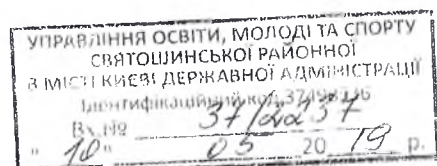 УПРАВЛІННЯ ОСВІТИ, МОЛОДІ ТА СПОРТУ
СВЯТОШИНСЬКОЇ РАЙОННОЇ
В МІСТІ КИЄВІ ДЕРЖАВНОЇ АДМІНІСТРАЦІЇ
Ідентифікаційний код
Вх.№ 37/2237
"10" 05 2019 р.